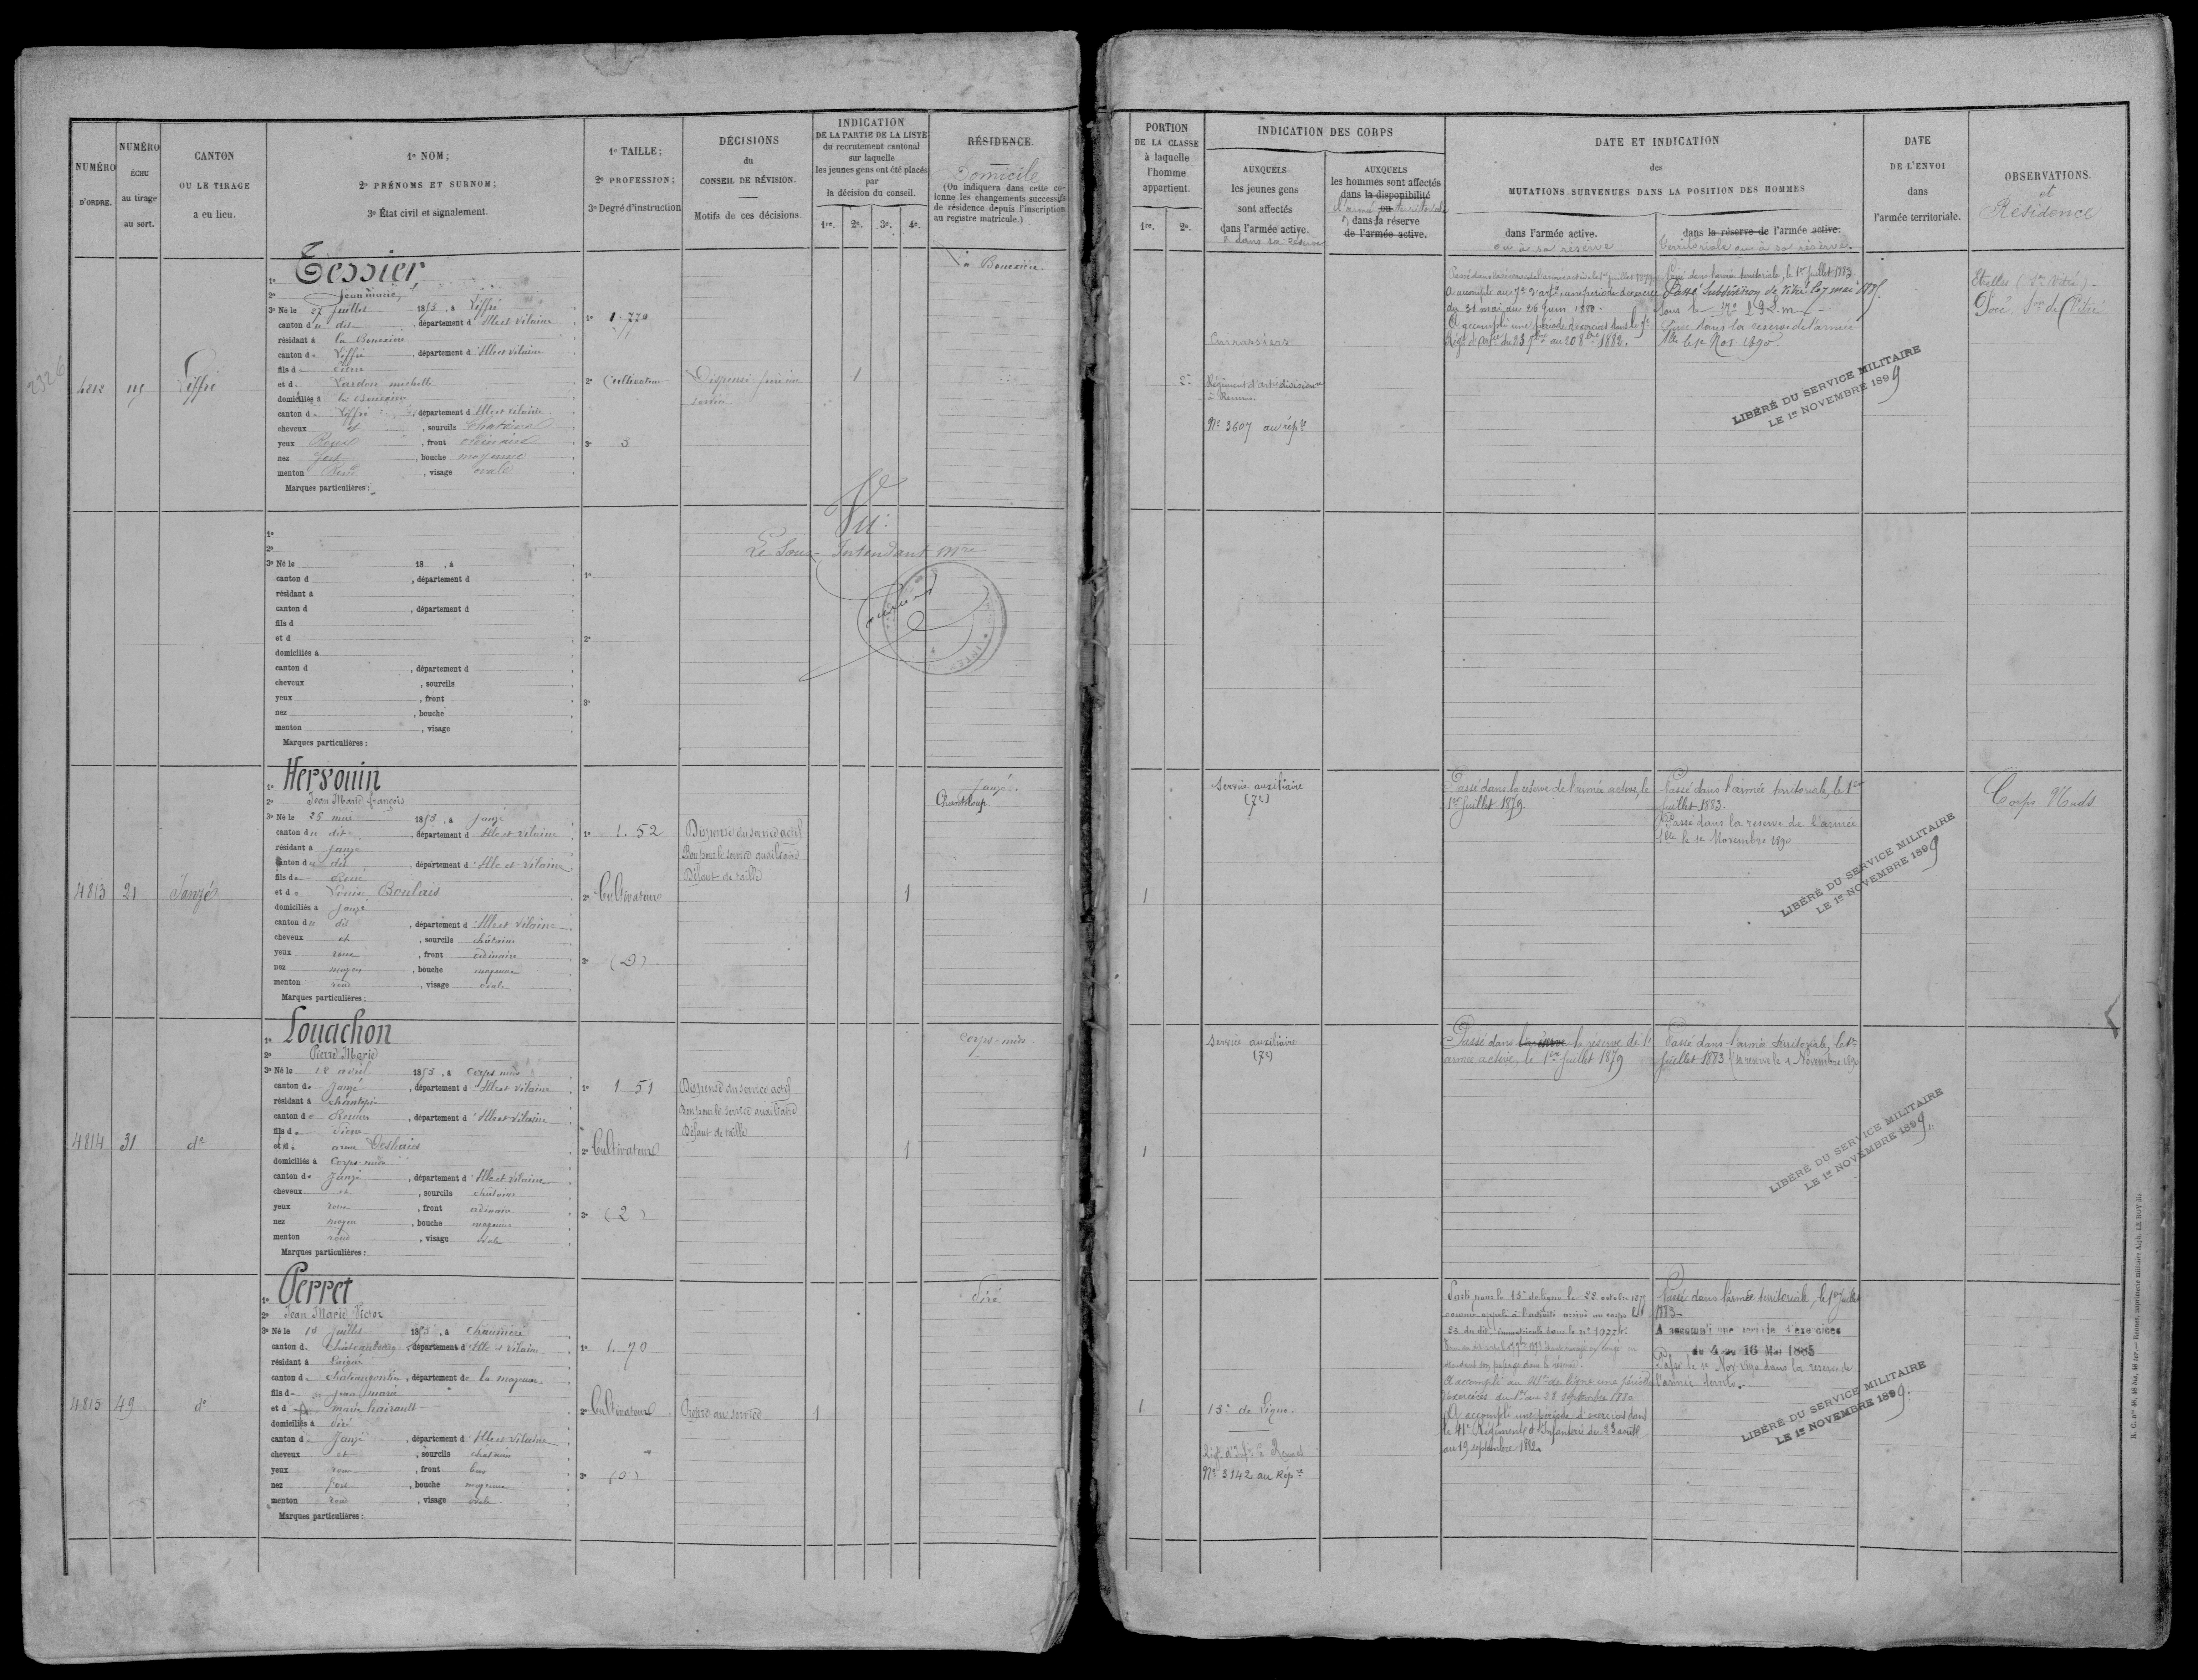 NUMÉRO
D'ORDRE.
NUMÉRO
ÉCHU
au tirage
au sort.
CANTON
OU LE TIRAGE
a eu lieu.
1º NOM;
2º PRÉNOMS ET SURNOM;
3º État civil et signalement.
1º TAILLE;
2º PROFESSION;
3º Degré d'instruction
DÉCISIONS
du
CONSEIL DE RÉVISION.
Motifs de ces décisions.
INDICATION
DE LA PARTIE DE LA LISTE
du recrutement cantonal
sur laquelle
les jeunes gens ont été placés
par
la décision du conseil.
1re. 2e. 3e. 4e.
RÉSIDENCE.
Domicile
(On indiquera dans cette co-
lonne les changements successifs
de résidence depuis l'inscription
au registre matricule.)
PORTION
DE LA CLASSE
à laquelle
l'homme
appartient.
1re. 2e.
INDICATION DES CORPS
AUXQUELS
les jeunes gens
sont affectés
dans l'armée active.
& dans sa réserve
AUXQUELS
les hommes sont affectés
dans la disponibilité
ou
dans la réserve
de l'armée active.
DATE ET INDICATION
des
MUTATIONS SURVENUES DANS LA POSITION DES HOMMES
dans l'armée active.
ou à sa réserve
dans la réserve de l'armée active.
territoriale ou à sa réserve.
DATE
DE L'ENVOI
dans
l'armée territoriale.
OBSERVATIONS.
et
Résidence
2326
4812 115 Liffré
1º Tessier
2º Jean marie,
3º Né le 27 Juillet 1853, à Liffré
canton du dit, département d'Ille et Vilaine
résidant à la Bouexière
canton de Liffré, département d'Ille et Vilaine
fils de Pierre
et de michelle
domiciliés à la Bouexière
canton de Liffré, département d'Ille et Vilaine
cheveux et, sourcils
yeux Roux, front ordinaire
nez fort, bouche moyenne
menton Rond, visage ovale
Marques particulières :
1º 1.770
2º Cultivateur
3º 3
1
La Bouexière.
2e
Cuirassiers
Régiment d'artie divisionre
à Rennes.
No 3607 au répre
Passé dans la réserve de l'armée active le 1er juillet 1879
A accompli au 7e d'artie une période d'exercice
du 31 mai au 26 Juin 1880.
A accompli une période d'exercices dans le 7e
Régt d'artie du 23 7bre au 20 8bre 1882.
Passé dans l'armée territoriale, le 1er Juillet 1883
Passé Subdivision de Vitré le 7 mai 1885
Sous le No
Passé dans la réserve de l'armée
tle le 1e Nov. 1890
LIBÉRÉ DU SERVICE MILITAIRE
LE 1er NOVEMBRE 1899
Etrelles (Son Vitré)
Pocé. Son de Vitré
1º
2º
3º Né le 18 , à
canton d , département d
résidant à
canton d , département d
fils d
et d
domiciliés à
canton d , département d
cheveux , sourcils
yeux , front
nez , bouche
menton , visage
Marques particulières :
1º
2º
3º
Vu:
Le Sous-Intendant Mre
4813 21 Janzé
1º Hersouin
2º Jean Marie françois
3º Né le 25 mai 1853, à Janzé
canton du dit, département d'Ille et Vilaine
résidant à Janzé
canton du dit, département d'Ille et Vilaine
fils de René
et de Louise Boulais
domiciliés à Janzé
canton du dit, département d'Ille et Vilaine
cheveux et, sourcils châtains
yeux roux, front ordinaire
nez moyen, bouche moyenne
menton rond, visage ovale
Marques particulières :
1º 1.52
2º Cultivateur
3º (2)
Dispensé du service actif
Bon pour le service auxiliaire
Défaut de taille
1
Janzé.
Chanteloup
1
Service auxiliaire
(7e)
Passé dans la réserve de l'armée active, le
1er Juillet 1879.
Passé dans l'armée territoriale, le 1er
Juillet 1883.
Passé dans la réserve de l'armée
tlle le 1e Novembre 1890
LIBÉRÉ DU SERVICE MILITAIRE
LE 1er NOVEMBRE 1899
Corps-Nuds
4814 31 do
1º Louachon
2º Pierre Marie
3º Né le 18 avril 1853, à Corps nuds
canton de Janzé, département d'Ille et Vilaine
résidant à chantepie
canton de Rennes, département d'Ille et Vilaine
fils de Pierre
et de anne Deshaies
domiciliés à Corps nuds
canton de Janzé, département d'Ille et Vilaine
cheveux et, sourcils châtains
yeux roux, front ordinaire
nez moyen, bouche moyenne
menton rond, visage ovale
Marques particulières :
1º 1.51
2º Cultivateur
3º (2)
Dispensé du service actif
Bon pour le service auxiliaire
Défaut de taille
1
Corps-nuds
1
Service auxiliaire
(7e)
Passé dans la réserve la réserve de l'
armée active, le 1er Juillet 1879
Passé dans l'armée territoriale, le 1er
Juillet 1883 sa réserve le 1 Novembre 1890
LIBÉRÉ DU SERVICE MILITAIRE
LE 1er NOVEMBRE 1899.
4815 49 do
1º Perret
2º Jean Marie Victor
3º Né le 10 Juillet 1853, à
canton de Châteaubourg, département d'Ille et Vilaine
résidant à
canton de Châteaugontier, département de la mayenne
fils de Jean marie
et de marie hairault
domiciliés à Piré
canton de Janzé, département d'Ille et Vilaine
cheveux et, sourcils châtains
yeux roux, front bas
nez fort, bouche moyenne
menton rond, visage ovale.
Marques particulières :
1º 1.70
2º Cultivateur
3º (0)
Propre au service
1
Piré
1
15e de ligne.
Régt d'Infie à Rennes
No 3142 au Répre
Parti pour le 15e de ligne le 22 octobre
comme appelé à l'activité arrivé au corps le
23 du dit, immatriculé sous le no
attendant son passage dans la réserve.
A accompli au 41e de ligne une période
d'exercices du 1er au 28 septembre 1880
A accompli une période d'exercices dans
le 41e Régiment d'Infanterie du 23 août
au 19 septembre 1882.
Passé dans l'armée territoriale, le 1er Juillet
1883.
A accompli une période d'exercices
du 4 au 16 Mai 1885
Passé le 1e Nov. 1890 dans la réserve de
l'armée territle.
LIBÉRÉ DU SERVICE MILITAIRE
LE 1er NOVEMBRE 1899.